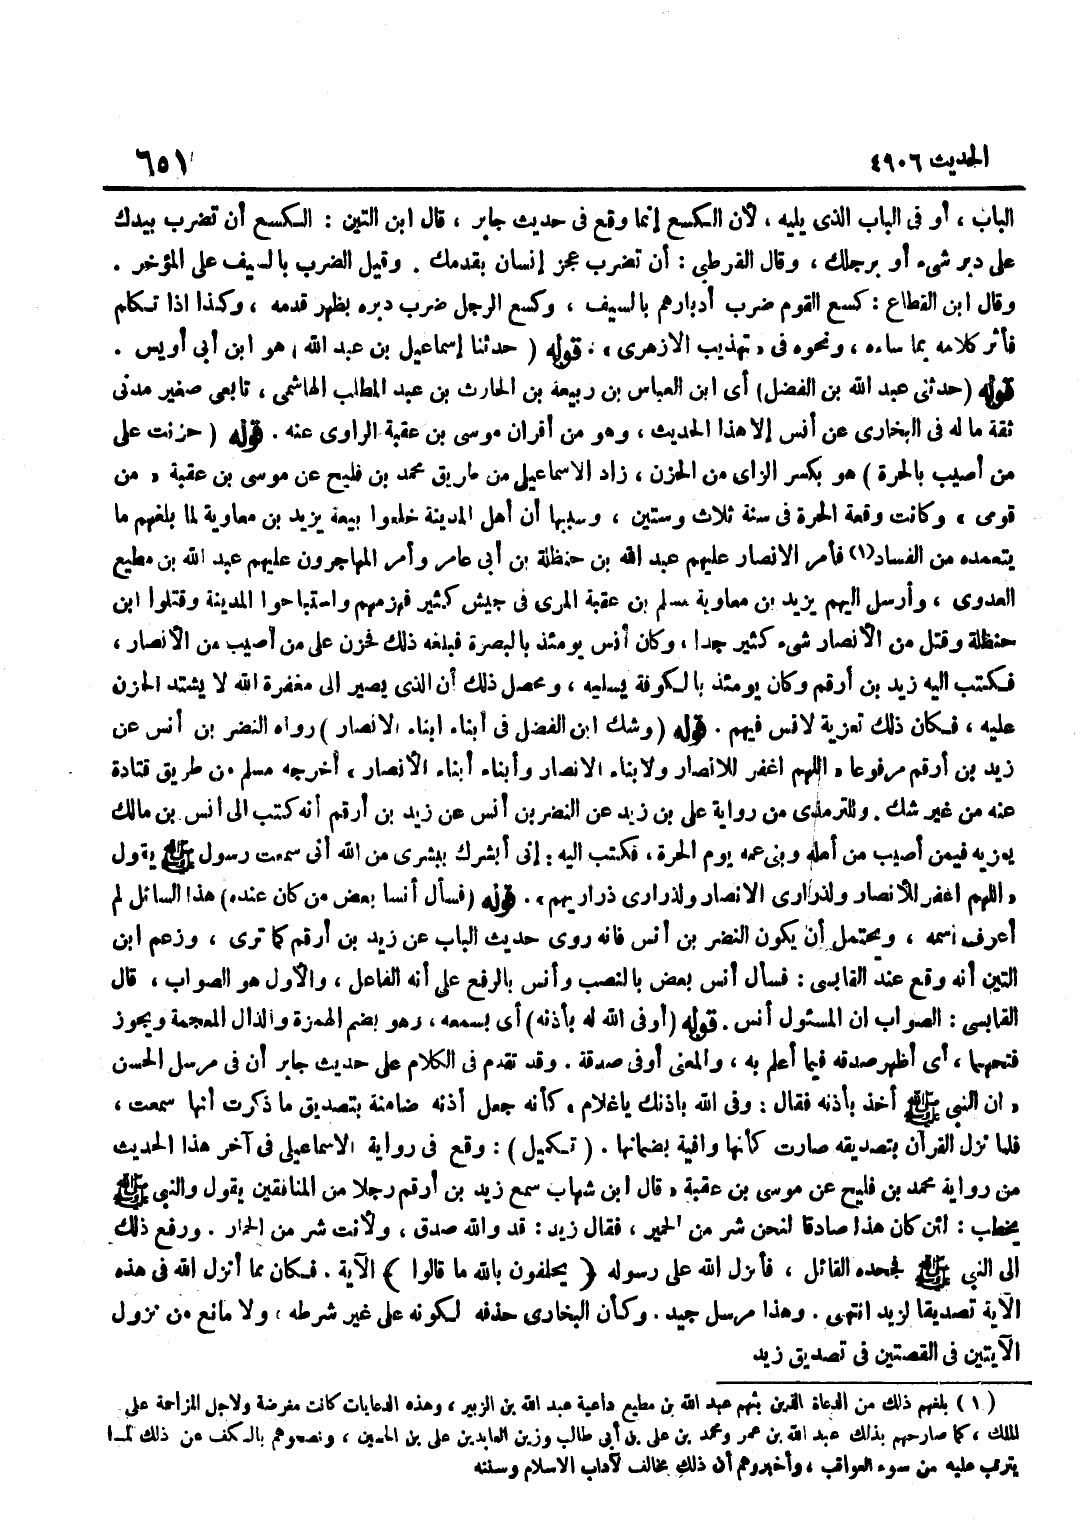 الحديث ٤٩٠٦
٦٥١
الباب ، أو فى الباب الذى يليه ، لأن الكسع إنما وقع فى حديث جابر ، قال ابن التين : الكسع أن تضرب بيدك
على دبر شىء أو برجلك ، وقال القرطبى : أن تضرب عجز إنسان بقدمك . وقيل الضرب بالسيف على المؤخر .
وقال ابن القطاع : كسع القوم ضرب أدبارهم بالسيف ، وكسع الرجل ضرب دبره بظهر قدمه ، وكذا اذا تكلم
فأثر كلامه بما ساءه ، ونحوه فى « تهذيب الازهرى » . قوله ( حدثنا إسماعيل بن عبد الله ) هو ابن أبى أويس .
قوله (حدثنى عبد الله بن الفضل) أى ابن العباس بن ربيعة بن الحارث بن عبد المطلب الهاشمى ، تابعى صغير مدنى
ثقة ما له فى البخارى عن أنس إلا هذا الحديث ، وهو من أقران موسى بن عقبة الراوى عنه . قوله ( حزنت على
من أصيب بالحرة ) هو بكسر الزاى من الحزن ، زاد الاسماعيلى من طريق محمد بن فليح عن موسى بن عقبة « من
قومى » وكانت وقعة الحرة فى سنة ثلاث وستين ، وسببها أن أهل المدينة خلعوا بيعة يزيد بن معاوية لما بلغهم ما
يتعمده من الفساد(١) فأمر الانصار عليهم عبد الله بن حنظلة بن أبى عامر وأمر المهاجرون عليهم عبد الله بن مطيع
العدوى ، وأرسل اليهم يزيد بن معاوية مسلم بن عقبة المرى فى جيش كثير فهزمهم واستباحوا المدينة وقتلوا ابن
حنظلة وقتل من الأنصار شىء كثير جدا ، وكان أنس يومئذ بالبصرة فبلغه ذلك فحزن على من أصيب من الأنصار ،
فكتب اليه زيد بن أرقم وكان يومئذ بالكوفة يسليه ، ومحصل ذلك أن الذى يصير الى مغفرة الله لا يشتد الحزن
عليه ، فكان ذلك تعزية لانس فيهم . قوله (وشك ابن الفضل فى أبناء ابناء الانصار ) رواه النضر بن أنس عن
زيد بن أرقم مرفوعا « اللهم اغفر للانصار ولابناء الانصار وأبناء أبناء الأنصار » أخرجه مسلم من طريق قتادة
عنه من غير شك . وللترمذى من رواية على بن زيد عن النضر بن أنس عن زيد بن أرقم أنه كتب الى أنس بن مالك
يعزيه فيمن أصيب من أهله وبنى عمه يوم الحرة ، فكتب اليه : إنى أبشرك ببشرى من الله أنى سمعت رسول ﷺ يقول
« اللهم اغفر للأنصار ولذرارى الانصار ولذرارى ذراريهم » . قوله (فسأل أنسا بعض من كان عنده) هذا السائل لم
أعرف اسمه ، ويحتمل أن يكون النضر بن أنس فانه روى حديث الباب عن زيد بن أرقم كما ترى ، وزعم ابن
التين أنه وقع عند القابسى : فسأل أنس بعض بالنصب وأنس بالرفع على أنه الفاعل ، والأول هو الصواب ، قال
القابسى : الصواب ان المسئول أنس . قوله (أوفى الله له بأذنه) أى بسمعه ، وهو بضم الهمزة والذال المعجمة ويجوز
فتحهما ، أى أظهر صدقه فيما أعلم به ، والمعنى أوفى صدقة . وقد تقدم فى الكلام على حديث جابر أن فى مرسل الحسن
« ان النبى ﷺ أخذ بأذنه فقال : وفى الله باذنك ياغلام » كأنه جعل أذنه ضامنة بتصديق ما ذكرت أنها سمعت ،
فلما نزل القرآن بتصديقه صارت كأنها وافية بضمانها . ( تكميل ) : وقع فى رواية الاسماعيلى فى آخر هذا الحديث
من رواية محمد بن فليح عن موسى بن عقبة « قال ابن شهاب سمع زيد بن أرقم رجلا من المنافقين يقول والنبى ﷺ
يخطب : لئن كان هذا صادقا لنحن شر من الحمير ، فقال زيد : قد والله صدق ، ولأنت شر من الحمار . ورفع ذلك
الى النبى ﷺ فجحده القائل ، فأنزل الله على رسوله ﴿ يحلفون بالله ما قالوا ﴾ الآية . فكان مما أنزل الله فى هذه
الآية تصديقا لزيد انتهى . وهذا مرسل جيد . وكأن البخارى حذفه لكونه على غير شرطه ، ولا مانع من نزول
الآيتين فى القصتين فى تصديق زيد
( ١ ) بلغهم ذلك من الدعاة الذين بثهم عبد الله بن مطيع داعية عبد الله بن الزبير ، وهذه الدعايات كانت مغرضة ولاجل المزاحمة على
الملك ، كما صارحهم بذلك عبد الله بن عمر ومحمد بن على بن أبى طالب وزين العابدين على بن الحسين ، ونصحوهم بالكف عن ذلك لما
يترتب عليه من سوء العواقب ، وأخبروهم أن ذلك مخالف لآداب الاسلام وسننه